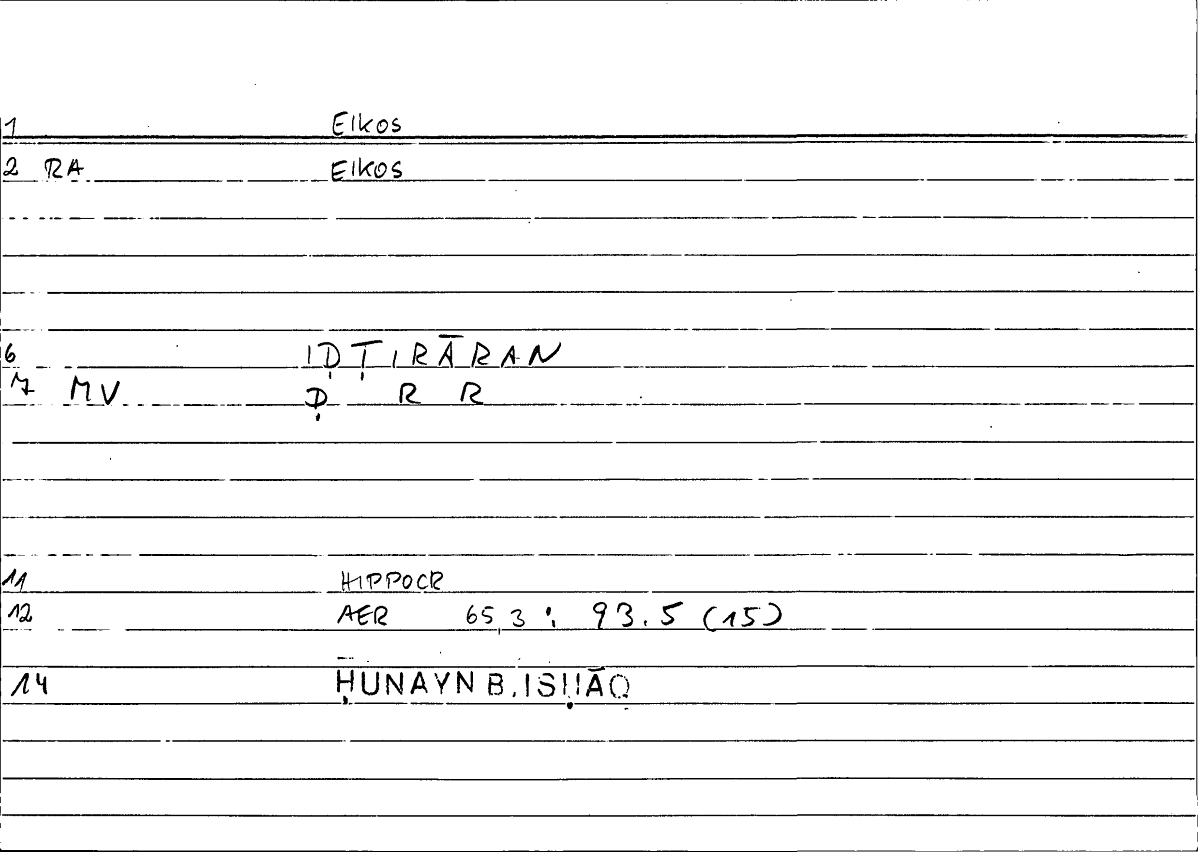 1 EIKOS
2 RA EIKOS
6 IḌṬIRĀRAN
7 MV Ḍ R R
11 HIPPOCR
12 AER 65,3 : 93.5 (15)
14 ḤUNAYN B. ISḤĀQ